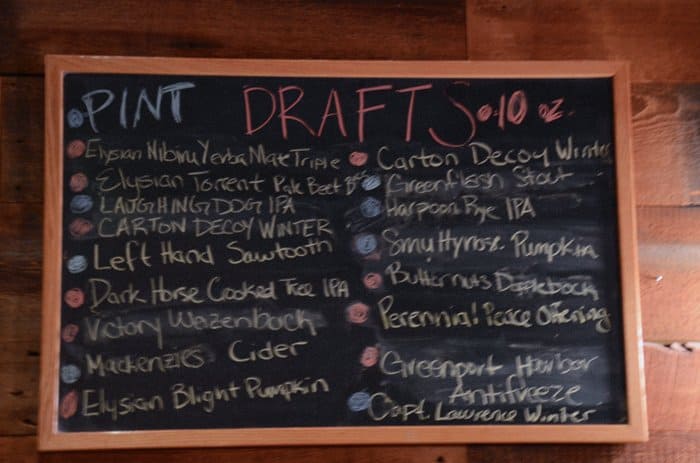 PINT DRAFTS 10 oz.
Elysian Nibiru Yerba Mate Triple
Elysian Torrent Pale Beet
LAUGHING DOG IPA
CARTON DECOY WINTER
Left Hand Sawtooth
Dark Horse Cooked Tree IPA
Victory Wazenbock
Mackenzies Cider
Elysian Blight Pumpkin
Carton Decoy Winter
Greenflash Stout
Harpoon Rye IPA
Pumpkin
Butternuts
Perennial Peace Offering
Greenport Harbor
Antifreeze
Capt. Lawrence Winter